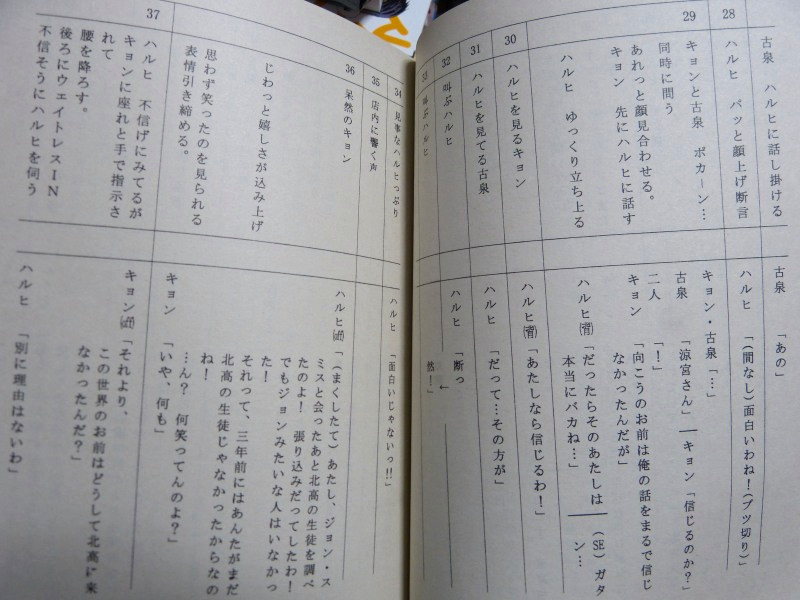 古泉 ハルヒに話し掛ける
古泉 「あの」
28
ハルヒ パッと顔上げ断言
ハルヒ 「(間なし)面白いわね!(ブツ切り)」
29
キョンと古泉 ポカーン…
キョン・古泉 「…」
同時に問う
古泉 「涼宮さん」―キョン「信じるのか?」
あれっと顔見合わせる。
二人 「!」
キョン 先にハルヒに話す
キョン 「向こうのお前は俺の話をまるで信じ
なかったんだが」
ハルヒ ゆっくり立ち上る
ハルヒ(背)「だったらそのあたしは――(SE)ガタ
本当にバカね…」 ン…
30
ハルヒを見るキョン
ハルヒ(背)「あたしなら信じるわ!」
31
ハルヒを見てる古泉
ハルヒ 「だって…その方が」
32
叫ぶハルヒ
ハルヒ 「断っ
↓
33
叫ぶハルヒ
然!」
34
見事なハルヒっぷり
ハルヒ 「面白いじゃないっ!!」
35
店内に響く声
36
呆然のキョン
ハルヒ(off)「(まくしたて)あたし、ジョン・ス
ミスと会ったあと北高の生徒を調べ
たのよ! 張り込みだってしたわ!
でもジョンみたいな人はいなかっ
た!
それって、三年前にはあんたがまだ
北高の生徒じゃなかったからなの
ね!
じわっと嬉しさが込み上げ
思わず笑ったのを見られる
…ん? 何笑ってんのよ?」
表情引き締める。
キョン 「いや、何も」
37
ハルヒ 不信げにみてるが
キョンに座れと手で指示さ
れて
腰を降ろす。
後ろにウェイトレスIN
不信そうにハルヒを伺う
キョン(off)「それより、
この世界のお前はどうして北高に来
なかったんだ?」
ハルヒ 「別に理由はないわ」